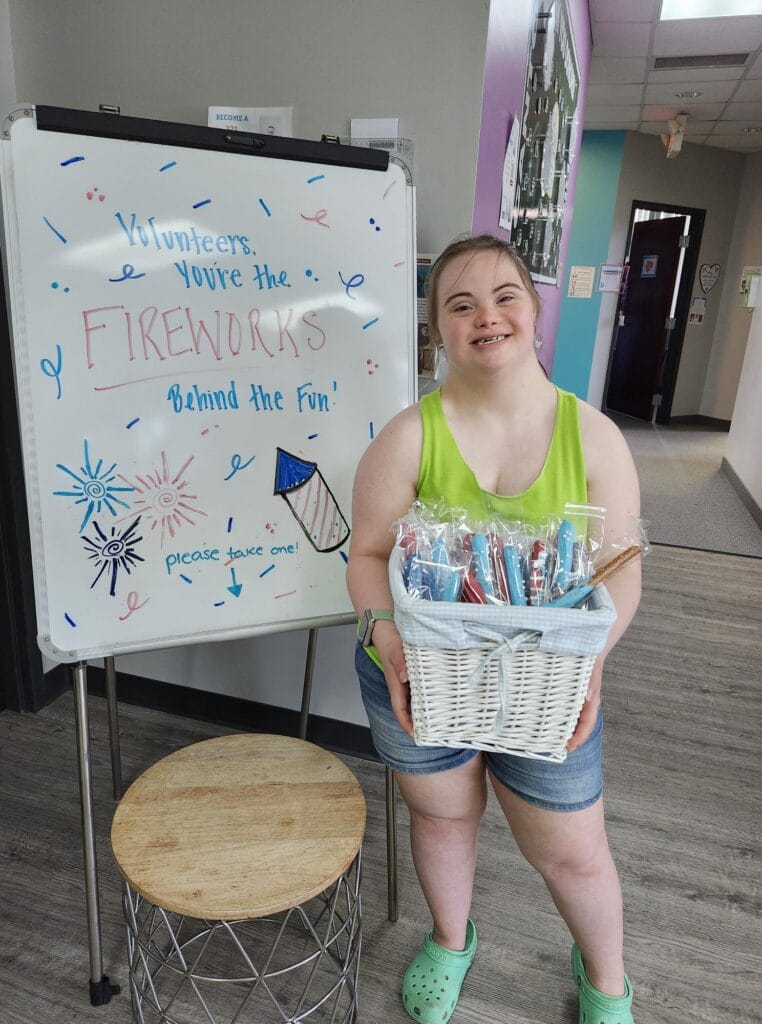 BECOME A
321
Volunteers,
You're the
FIREWORKS
Behind the Fun!
please take one!